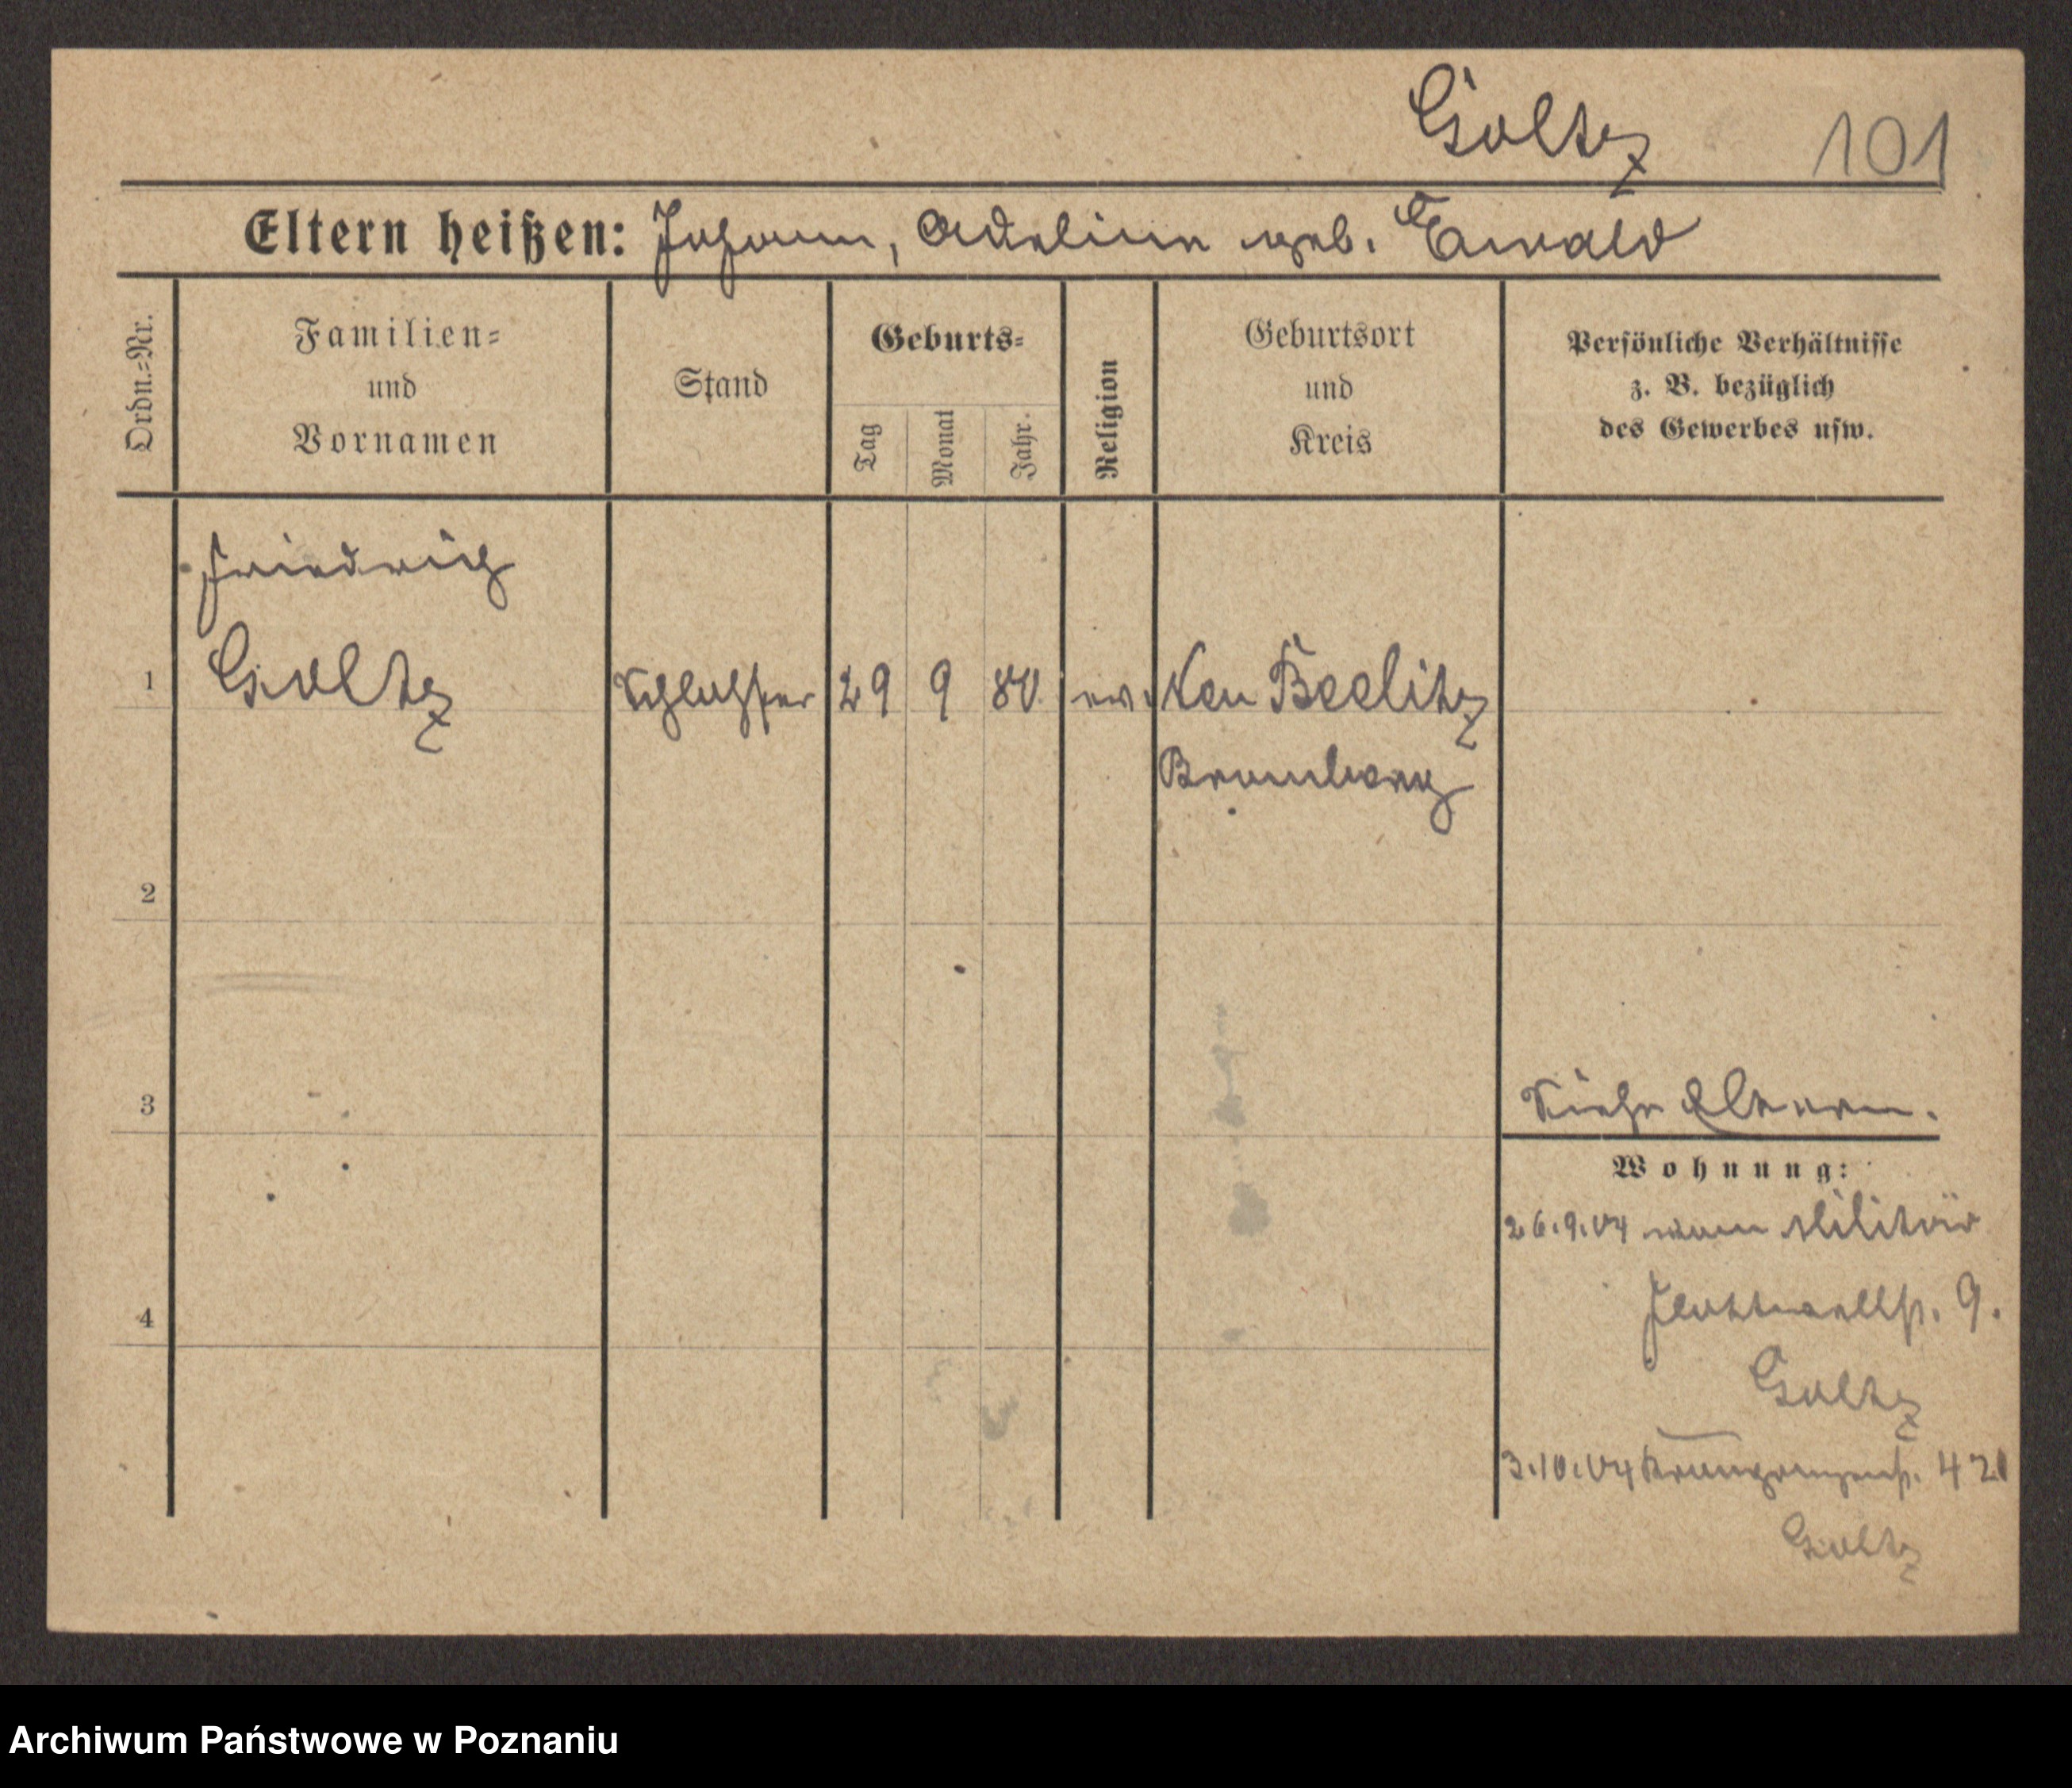 Goltz 101
Eltern heißen: Johann, Adeline geb. Ewald
Ordn.=Nr.
Familien=
und
Vornamen
Stand
Geburts=
Tag
Monat
Jahr.
Religion
Geburtsort
und
Kreis
Persönliche Verhältnisse
z. B. bezüglich
des Gewerbes usw.
Friedrich
1 Goltz Schlosser 29 9 80 ev. Neu Beelitz
Bromberg
2
3 Siehe Eltern.
Wohnung:
26.9.04 vom Militär
4 Flottwellstr. 9.
Goltz
3.10.04 Kronprinzenstr. 4
Goltz
Archiwum Państwowe w Poznaniu